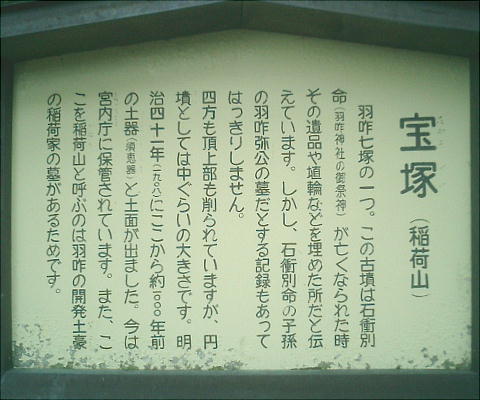 宝塚（稲荷山）
羽咋七塚の一つ。この古墳は石衝別
命（羽咋神社の御祭神）が亡くなられた時
その遺品や埴輪などを埋めた所だと伝
えています。しかし、石衝別命の子孫
の羽咋弥公の墓だとする記録もあって
はっきりしません。
四方も頂上部も削られていますが、円
墳としては中ぐらいの大きさです。明
治四十一年（一九〇八）にここから約一〇〇〇年前
の土器（須恵器）と土面が出ました。今は
宮内庁に保管されています。また、こ
こを稲荷山と呼ぶのは羽咋の開発土豪
の稲荷家の墓があるためです。